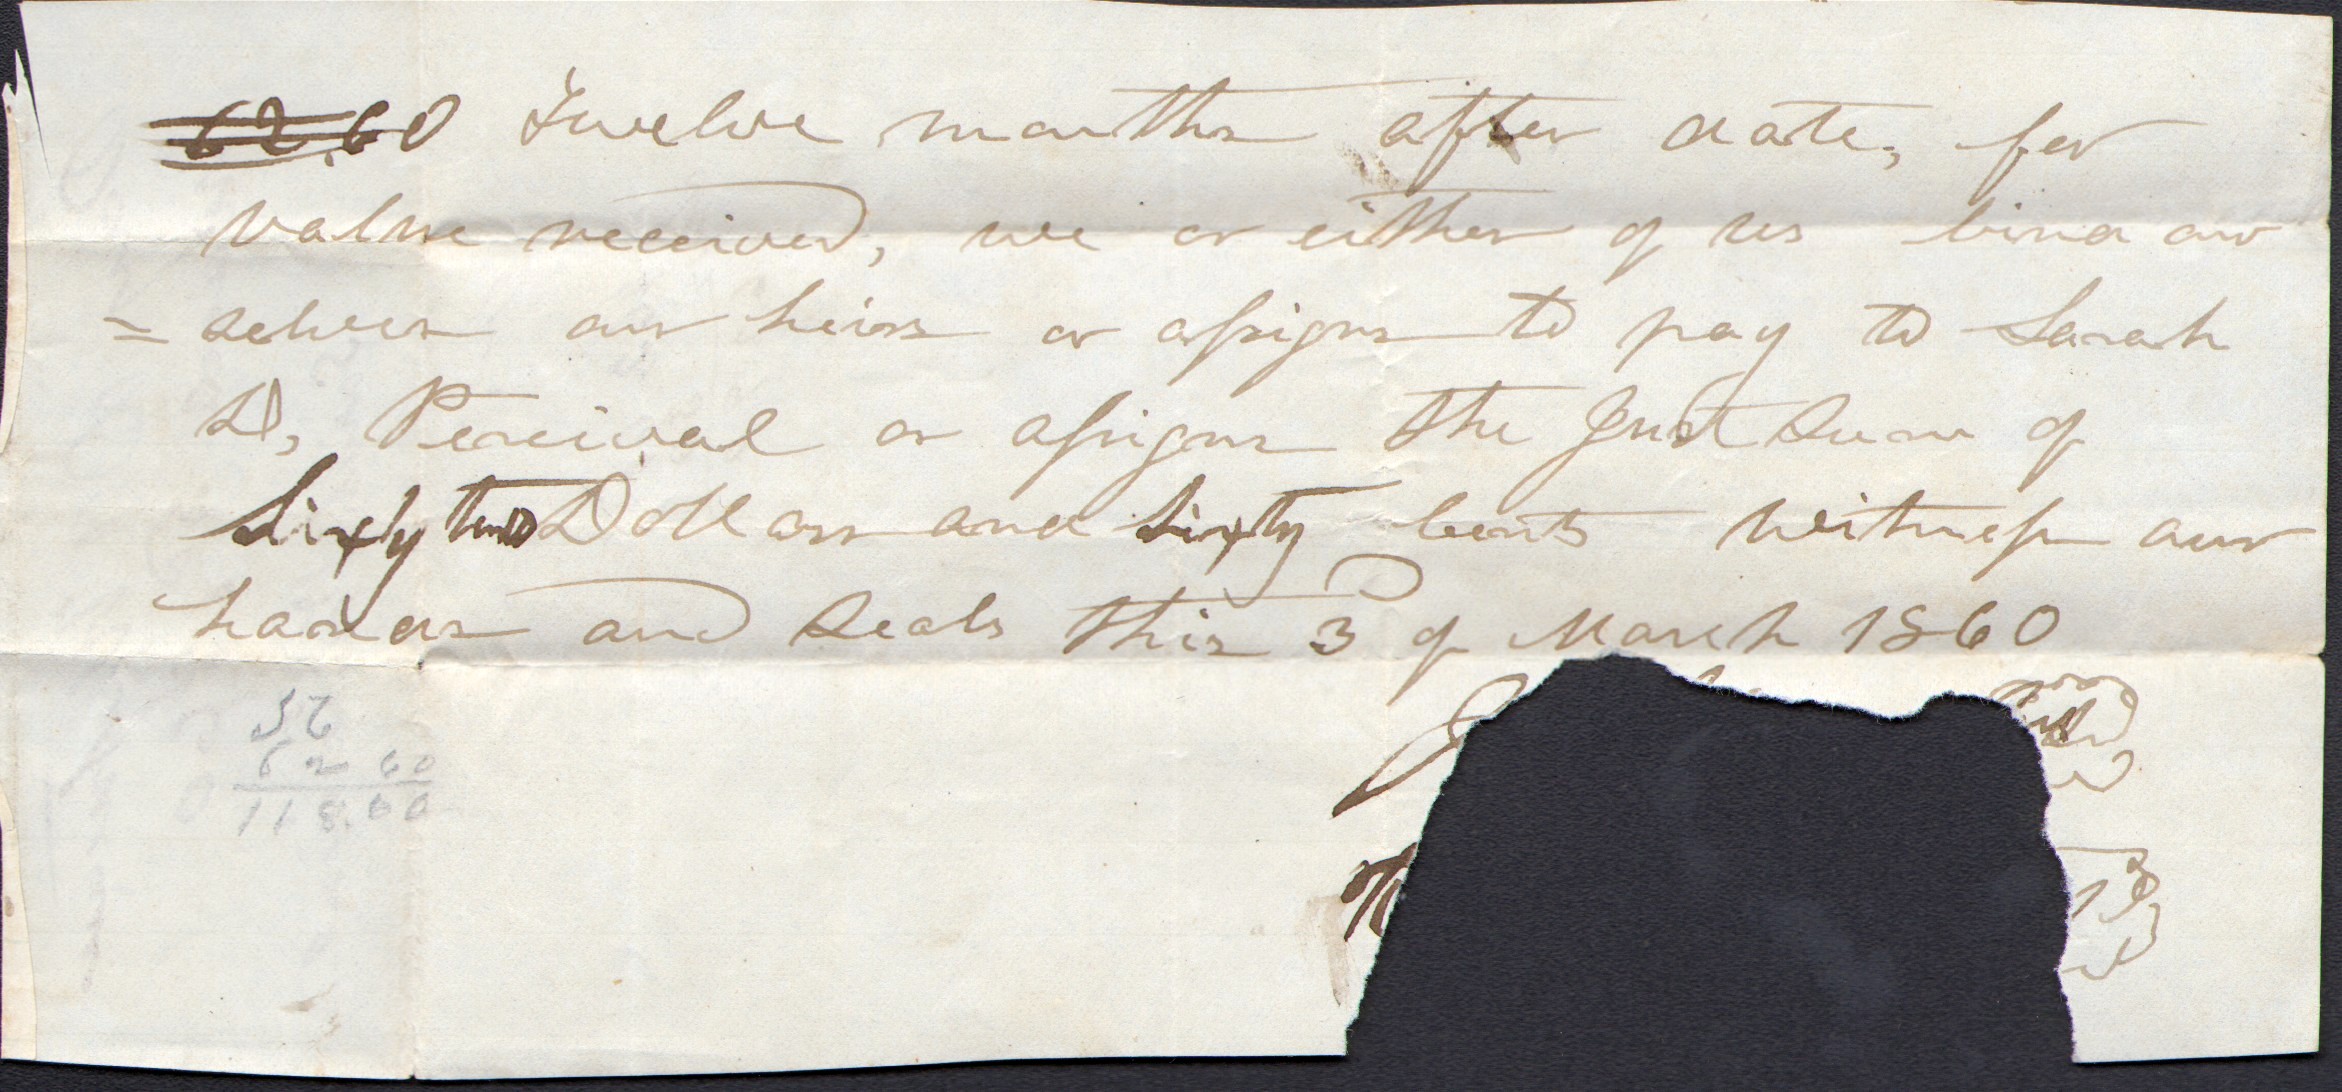 62.60 Twelve months after date, for
value received, we or either of us bind our
= selves our heirs or assigns to pay to Sarah
D, Percival or assigns the Just Sum of
Sixty two Dollars and Sixty Cents Witness our
hands and Seals this 3 of March 1860
62 60
118.60